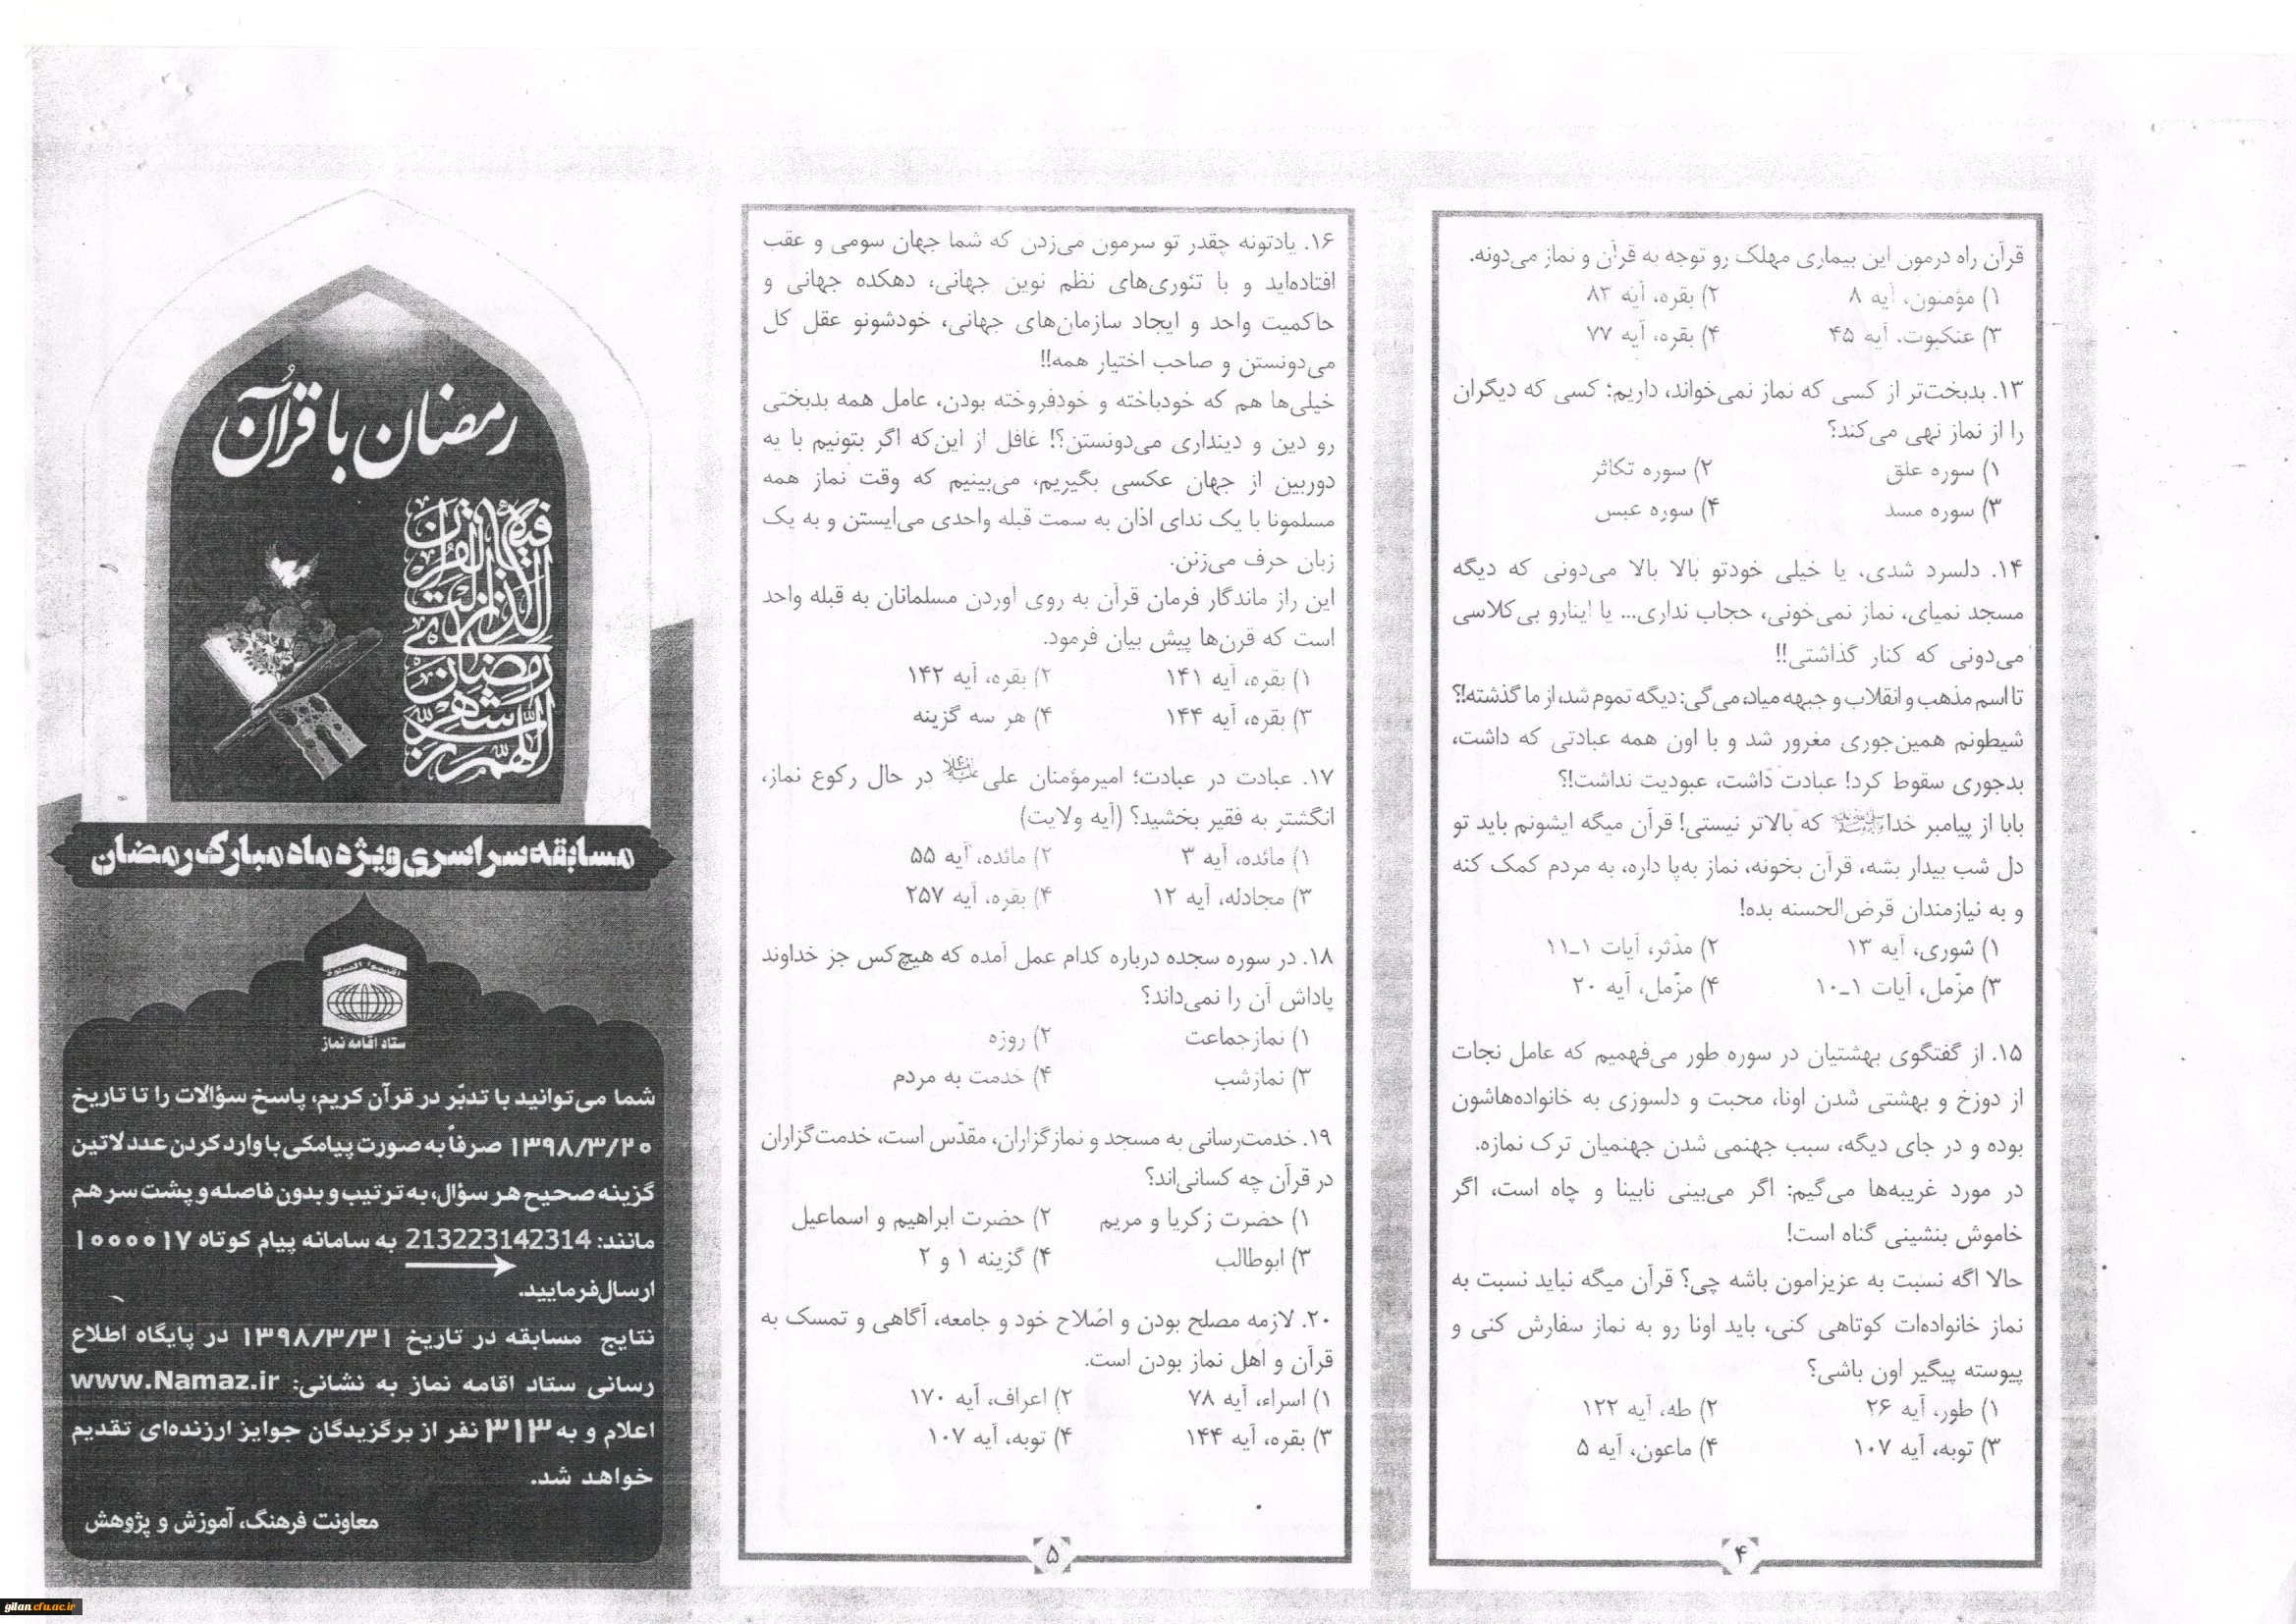 قرآن راه درمون این بیماری مهلک رو توجه به قرآن و نماز می‌دونه.
۱) مؤمنون، آیه ۸ ۲) بقره، آیه ۸۳
۳) عنکبوت، آیه ۴۵ ۴) بقره، آیه ۷۷
۱۳. بدبخت‌تر از کسی که نماز نمی‌خواند، داریم؛ کسی که دیگران
را از نماز نهی می‌کند؟
۱) سوره علق ۲) سوره تکاثر
۳) سوره مسد ۴) سوره عبس
۱۴. دلسرد شدی، یا خیلی خودتو بالا بالا می‌دونی که دیگه
مسجد نمیای، نماز نمی‌خونی، حجاب نداری... یا اینارو بی‌کلاسی
می‌دونی که کنار گذاشتی!!
تا اسم مذهب و انقلاب و جبهه میاد، می‌گی: دیگه تموم شد، از ما گذشته!؟
شیطونم همین‌جوری مغرور شد و با اون همه عبادتی که داشت،
بدجوری سقوط کرد! عبادت داشت، عبودیت نداشت!؟
بابا از پیامبر خدا که بالاتر نیستی! قرآن میگه ایشونم باید تو
دل شب بیدار بشه، قرآن بخونه، نماز به‌پا داره، به مردم کمک کنه
و به نیازمندان قرض‌الحسنه بده!
۱) شوری، آیه ۱۳ ۲) مدّثر، آیات ۱ـ۱۱
۳) مزّمل، آیات ۱ـ۱۰ ۴) مزّمل، آیه ۲۰
۱۵. از گفتگوی بهشتیان در سوره طور می‌فهمیم که عامل نجات
از دوزخ و بهشتی شدن اونا، محبت و دلسوزی به خانواده‌هاشون
بوده و در جای دیگه، سبب جهنمی شدن جهنمیان ترک نمازه.
در مورد غریبه‌ها می‌گیم: اگر می‌بینی نابینا و چاه است، اگر
خاموش بنشینی گناه است!
حالا اگه نسبت به عزیزامون باشه چی؟ قرآن میگه نباید نسبت به
نماز خانواده‌ات کوتاهی کنی، باید اونا رو به نماز سفارش کنی و
پیوسته پیگیر اون باشی؟
۱) طور، آیه ۲۶ ۲) طه، آیه ۱۲۲
۳) توبه، آیه ۱۰۷ ۴) ماعون، آیه ۵
۴
۱۶. یادتونه چقدر تو سرمون می‌زدن که شما جهان سومی و عقب
افتاده‌اید و با تئوری‌های نظم نوین جهانی، دهکده جهانی و
حاکمیت واحد و ایجاد سازمان‌های جهانی، خودشونو عقل کل
می‌دونستن و صاحب اختیار همه!!
خیلی‌ها هم که خودباخته و خودفروخته بودن، عامل همه بدبختی
رو دین و دینداری می‌دونستن؟! غافل از این‌که اگر بتونیم با یه
دوربین از جهان عکسی بگیریم، می‌بینیم که وقت نماز همه
مسلمونا با یک ندای اذان به سمت قبله واحدی می‌ایستن و به یک
زبان حرف می‌زنن.
این راز ماندگار فرمان قرآن به روی آوردن مسلمانان به قبله واحد
است که قرن‌ها پیش بیان فرمود.
۱) بقره، آیه ۱۴۱ ۲) بقره، آیه ۱۴۲
۳) بقره، آیه ۱۴۴ ۴) هر سه گزینه
۱۷. عبادت در عبادت؛ امیرمؤمنان علی در حال رکوع نماز،
انگشتر به فقیر بخشید؟ (آیه ولایت)
۱) مائده، آیه ۳ ۲) مائده، آیه ۵۵
۳) مجادله، آیه ۱۲ ۴) بقره، آیه ۲۵۷
۱۸. در سوره سجده درباره کدام عمل آمده که هیچ‌کس جز خداوند
پاداش آن را نمی‌داند؟
۱) نمازجماعت ۲) روزه
۳) نمازشب ۴) خدمت به مردم
۱۹. خدمت‌رسانی به مسجد و نمازگزاران، مقدّس است، خدمت‌گزاران
در قرآن چه کسانی‌اند؟
۱) حضرت زکریا و مریم ۲) حضرت ابراهیم و اسماعیل
۳) ابوطالب ۴) گزینه ۱ و ۲
۲۰. لازمه مصلح بودن و اصلاح خود و جامعه، آگاهی و تمسک به
قرآن و اهل نماز بودن است.
۱) اسراء، آیه ۷۸ ۲) اعراف، آیه ۱۷۰
۳) بقره، آیه ۱۴۴ ۴) توبه، آیه ۱۰۷
۵
رمضان با قرآن
اللهم رب شهر رمضان الذی انزلت فیه القرآن
مسابقه سراسری ویژه ماه مبارک رمضان
ستاد اقامه نماز
شما می‌توانید با تدبّر در قرآن کریم، پاسخ سؤالات را تا تاریخ
۱۳۹۸/۳/۲۰ صرفاً به صورت پیامکی با وارد کردن عدد لاتین
گزینه صحیح هر سؤال، به ترتیب و بدون فاصله و پشت سر هم
مانند: 213223142314 به سامانه پیام کوتاه ۱۰۰۰۰۱۷
ارسال فرمایید.
نتایج مسابقه در تاریخ ۱۳۹۸/۳/۳۱ در پایگاه اطلاع
رسانی ستاد اقامه نماز به نشانی: www.Namaz.ir
اعلام و به ۳۱۳ نفر از برگزیدگان جوایز ارزنده‌ای تقدیم
خواهد شد.
معاونت فرهنگ، آموزش و پژوهش
gilan.cfu.ac.ir